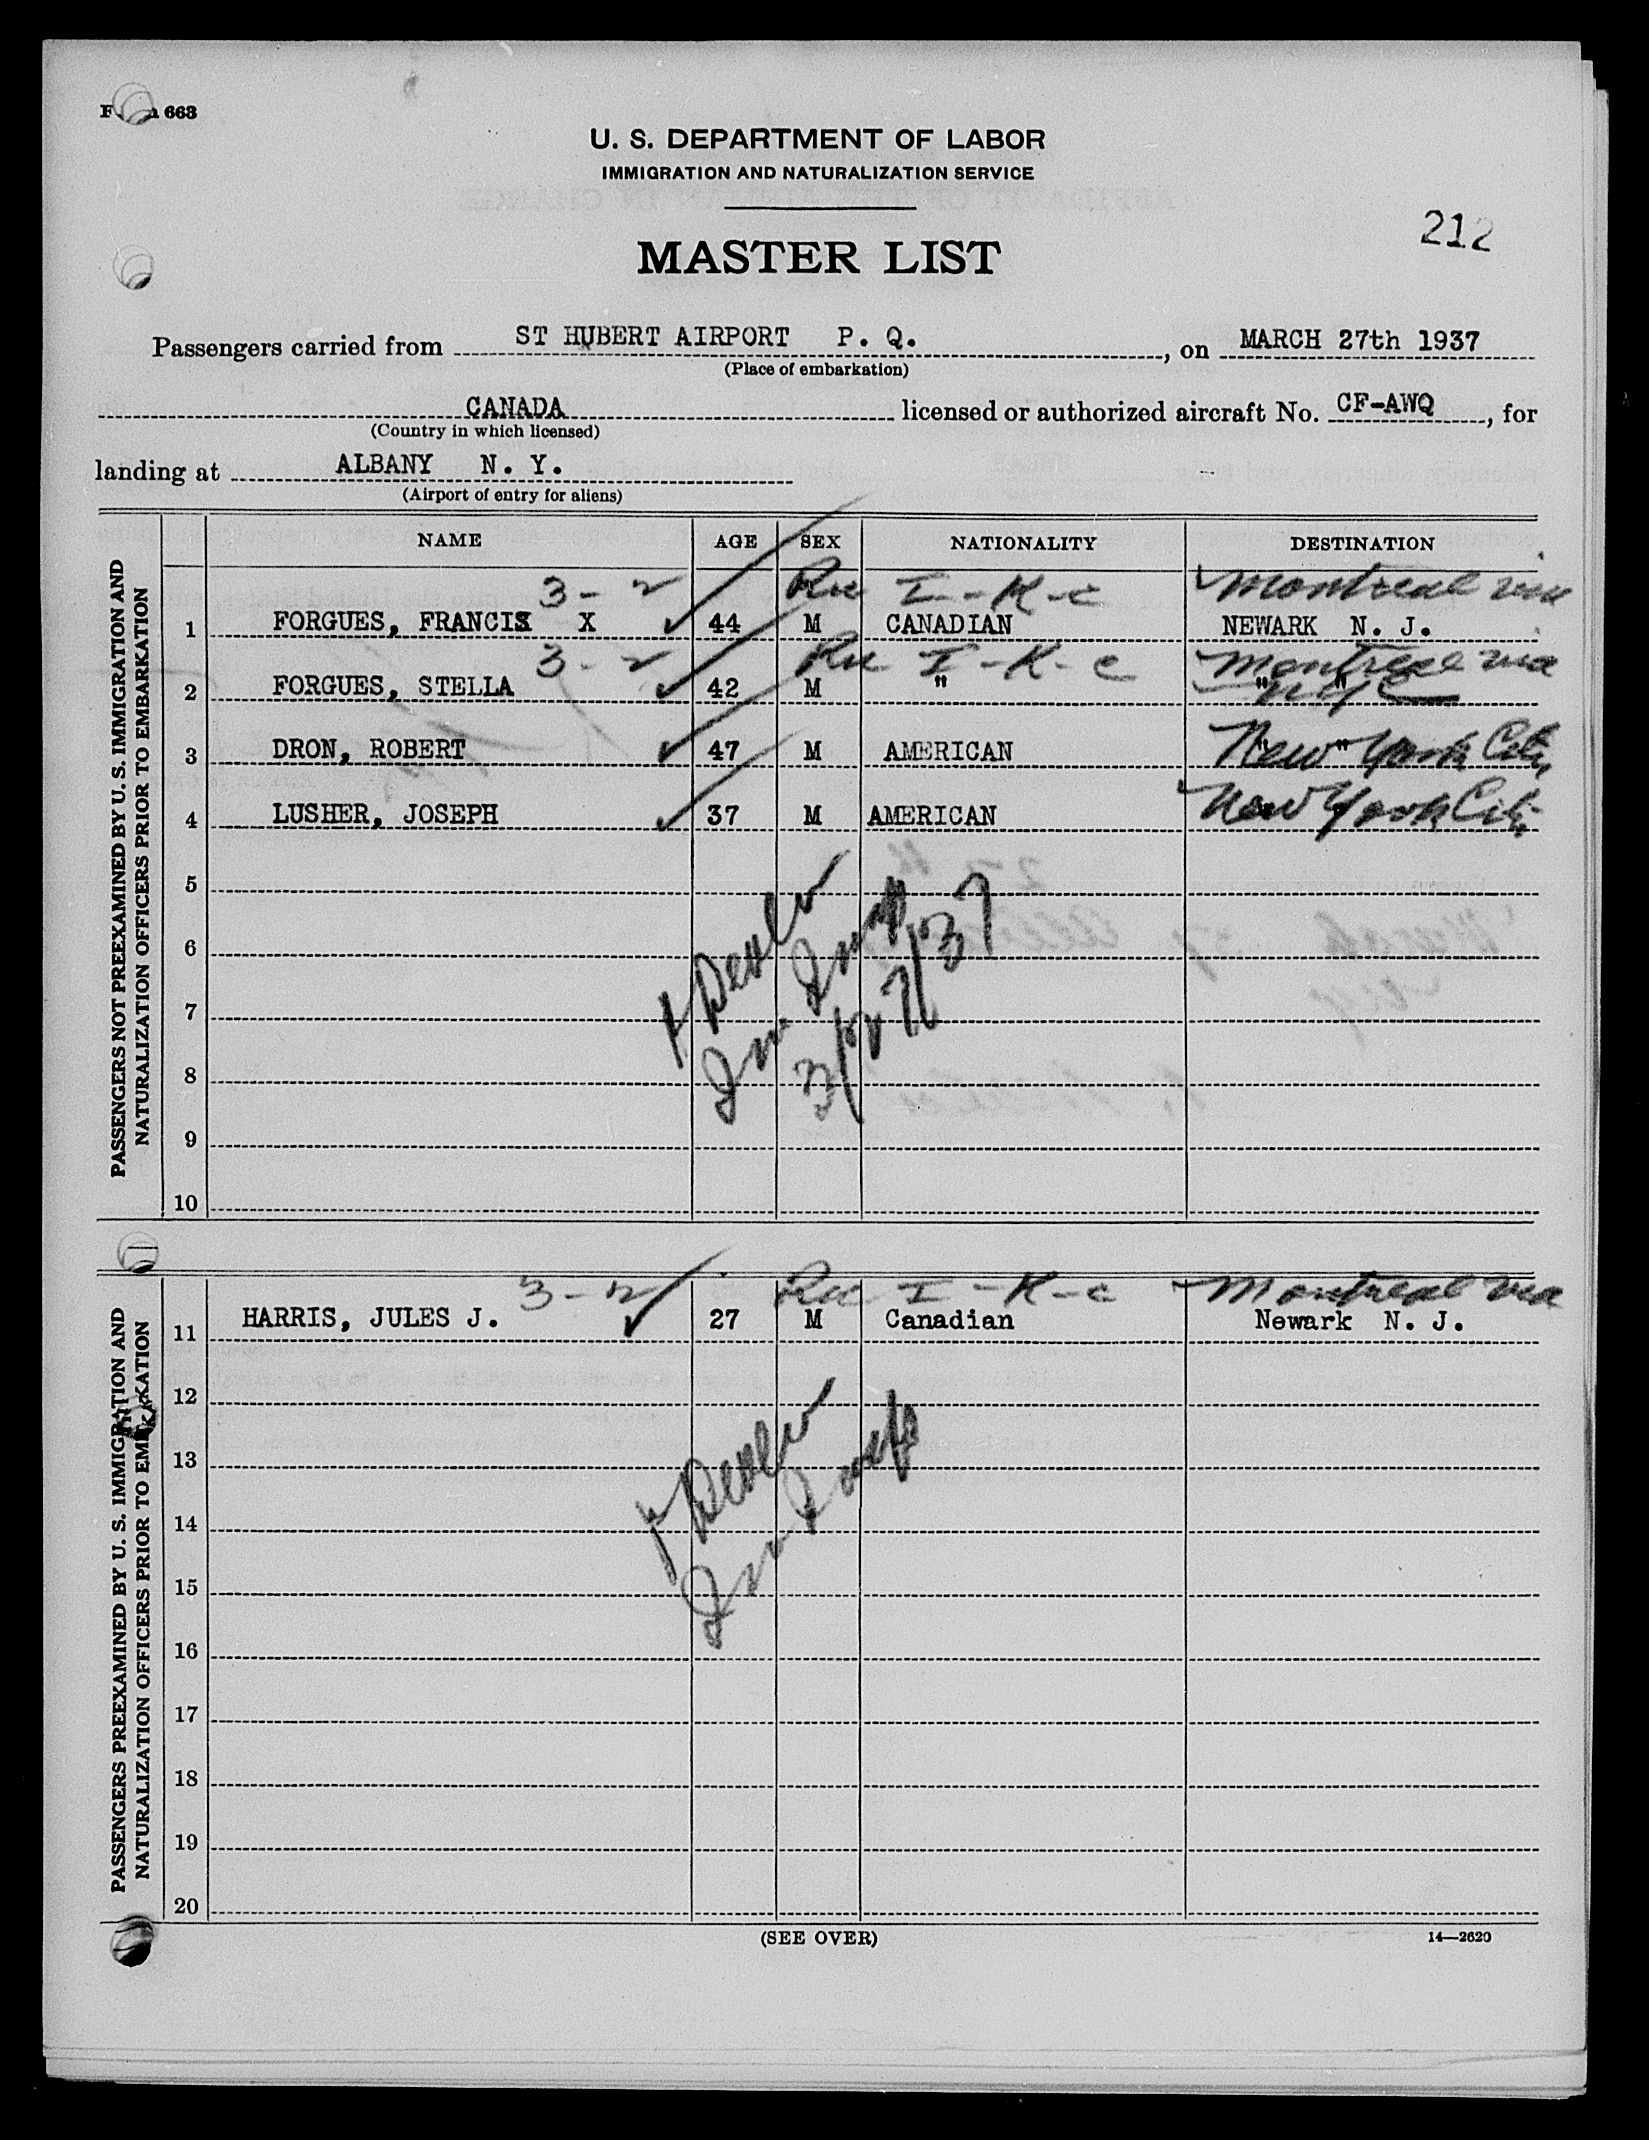 663
U. S. DEPARTMENT OF LABOR
IMMIGRATION AND NATURALIZATION SERVICE
212
MASTER LIST
Passengers carried from ST HUBERT AIRPORT P. Q., on MARCH 27th 1937
(Place of embarkation)
CANADA licensed or authorized aircraft No. CF-AWQ, for
(Country in which licensed)
landing at ALBANY N. Y.
(Airport of entry for aliens)
NAME AGE SEX NATIONALITY DESTINATION
PASSENGERS NOT PREEXAMINED BY U. S. IMMIGRATION AND
NATURALIZATION OFFICERS PRIOR TO EMBARKATION
3-2 I-K-c Montreal via
1 FORGUES, FRANCIS X 44 M CANADIAN NEWARK N. J.
3-2 I-K-c Montreal via
2 FORGUES, STELLA 42 M " " "
3 DRON, ROBERT 47 M AMERICAN New York City
4 LUSHER, JOSEPH 37 M AMERICAN New York City
5
6
7
8
9
10
3/27/37
PASSENGERS PREEXAMINED BY U. S. IMMIGRATION AND
NATURALIZATION OFFICERS PRIOR TO EMBARKATION
3-2 I-K-c Montreal via
11 HARRIS, JULES J. 27 M Canadian Newark N. J.
12
13
14
15
16
17
18
19
20
(SEE OVER)
14—2620